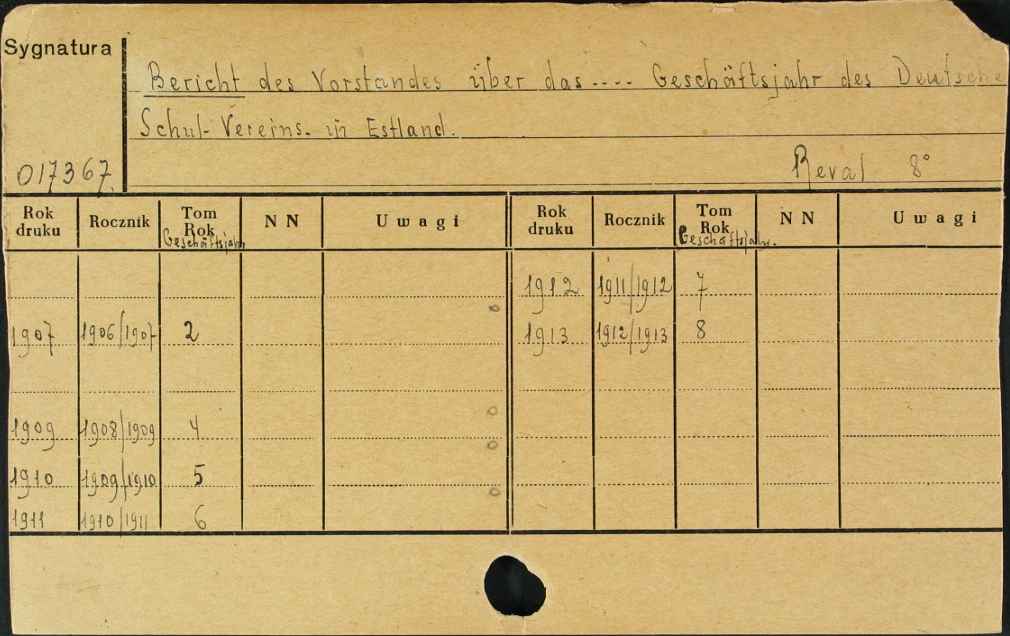 Sygnatura
Bericht des Vorstandes über das .... Geschäftsjahr des Deutsche
Schul-Vereins. in Estland.
017367.
Reval 8°
Rok druku Rocznik Tom Rok Geschäftsjahr NN Uwagi Rok druku Rocznik Tom Rok Geschäftsjahr. NN Uwagi
1912 1911/1912 7
1907 1906/1907 2 1913 1912/1913 8
1909 1908/1909 4
1910 1909/1910 5
1911 1910/1911 6